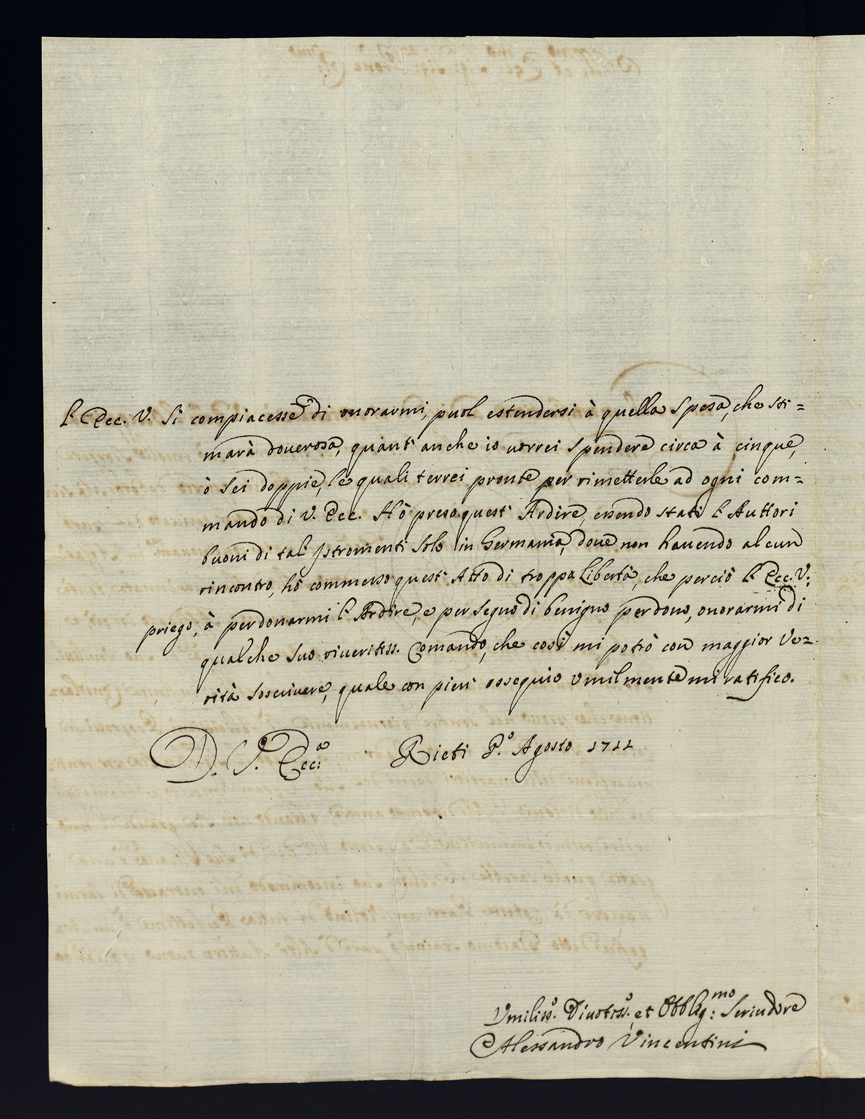 l'Ecc. V. si compiacesse di onorarmi, puol estendersi à quella spesa, che sti=
marà doverosa, quant'anche io vorrei spendere circa à cinque,
ò sei doppie, le quali terrei pronte per rimetterle ad ogni com=
mando di V. Ecc. Hò preso quest'Ardire, essendo stati l'Auttori
buoni di tal'Istromenti solo in Germania, dove non havendo alcun
rincontro, hò commesso quest'Atto di troppa libertà, che perciò l'Ecc. V.
priego, à perdonarmi l'Ardire, e per segno di benigno perdono, onorarmi di
qualche suo riveritiss. Comando, che così mi potrò con maggior ve=
rità soscrivere, quale con pien'ossequio umilmente mi ratifico.
D. V. Ecc.ª Rieti P.º Agosto 1711
Vmiliss.º Divotiss.º et Obblig.mo Servidore
Alessandro Vincentini